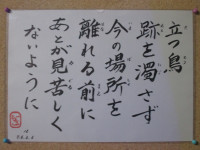 立つ鳥
跡を濁さず
今の場所を
離れる前に
あとが見苦しく
ないように